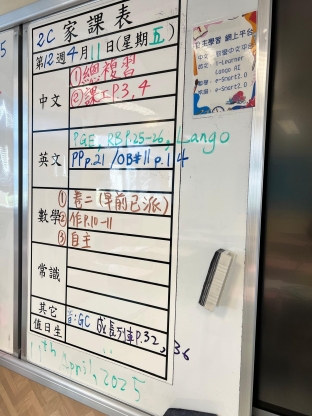 2C 家課表
第12週4月11日(星期五)
中文
①總複習
②課工P.3,4
英文
PGE, RB P.25-26, Lango
PP p.21 /OB#11 p.1-4
數學
①卷二(早前已派)
②作P.10-11
③自主
常識
其它
音:GC 成長列車P.32, 36
值日生
11th April, 2025
自主學習 網上平台
e-Learner
Lango AI
e-Smart2.0
e-Smart2.0